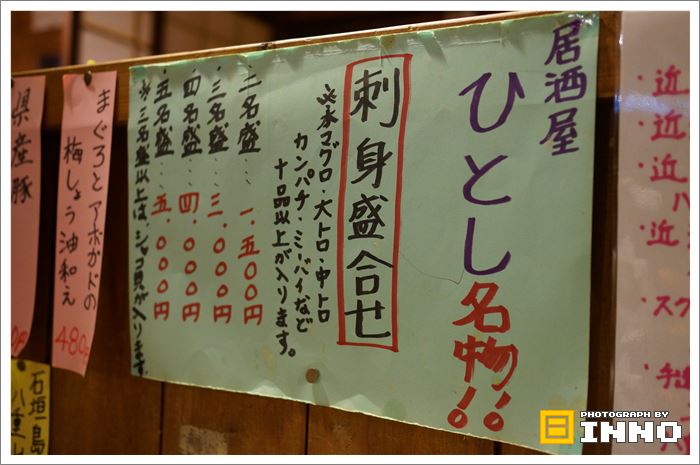 居酒屋
ひとし名物!!
刺身盛合せ
※本マグロ・大トロ・中トロ
カンパチ・ミーバイなど
十品以上が入ります。
二名盛…一.五〇〇円
三名盛…三.〇〇〇円
四名盛…四.〇〇〇円
五名盛…五.〇〇〇円
※三名盛以上は、シャコ貝が入ります
まぐろとアボカドの
梅しょう油和え
480円
県産豚
石垣島
八重
・近
・近
・近
・近
・スク
PHOTOGRAPH BY
INNO